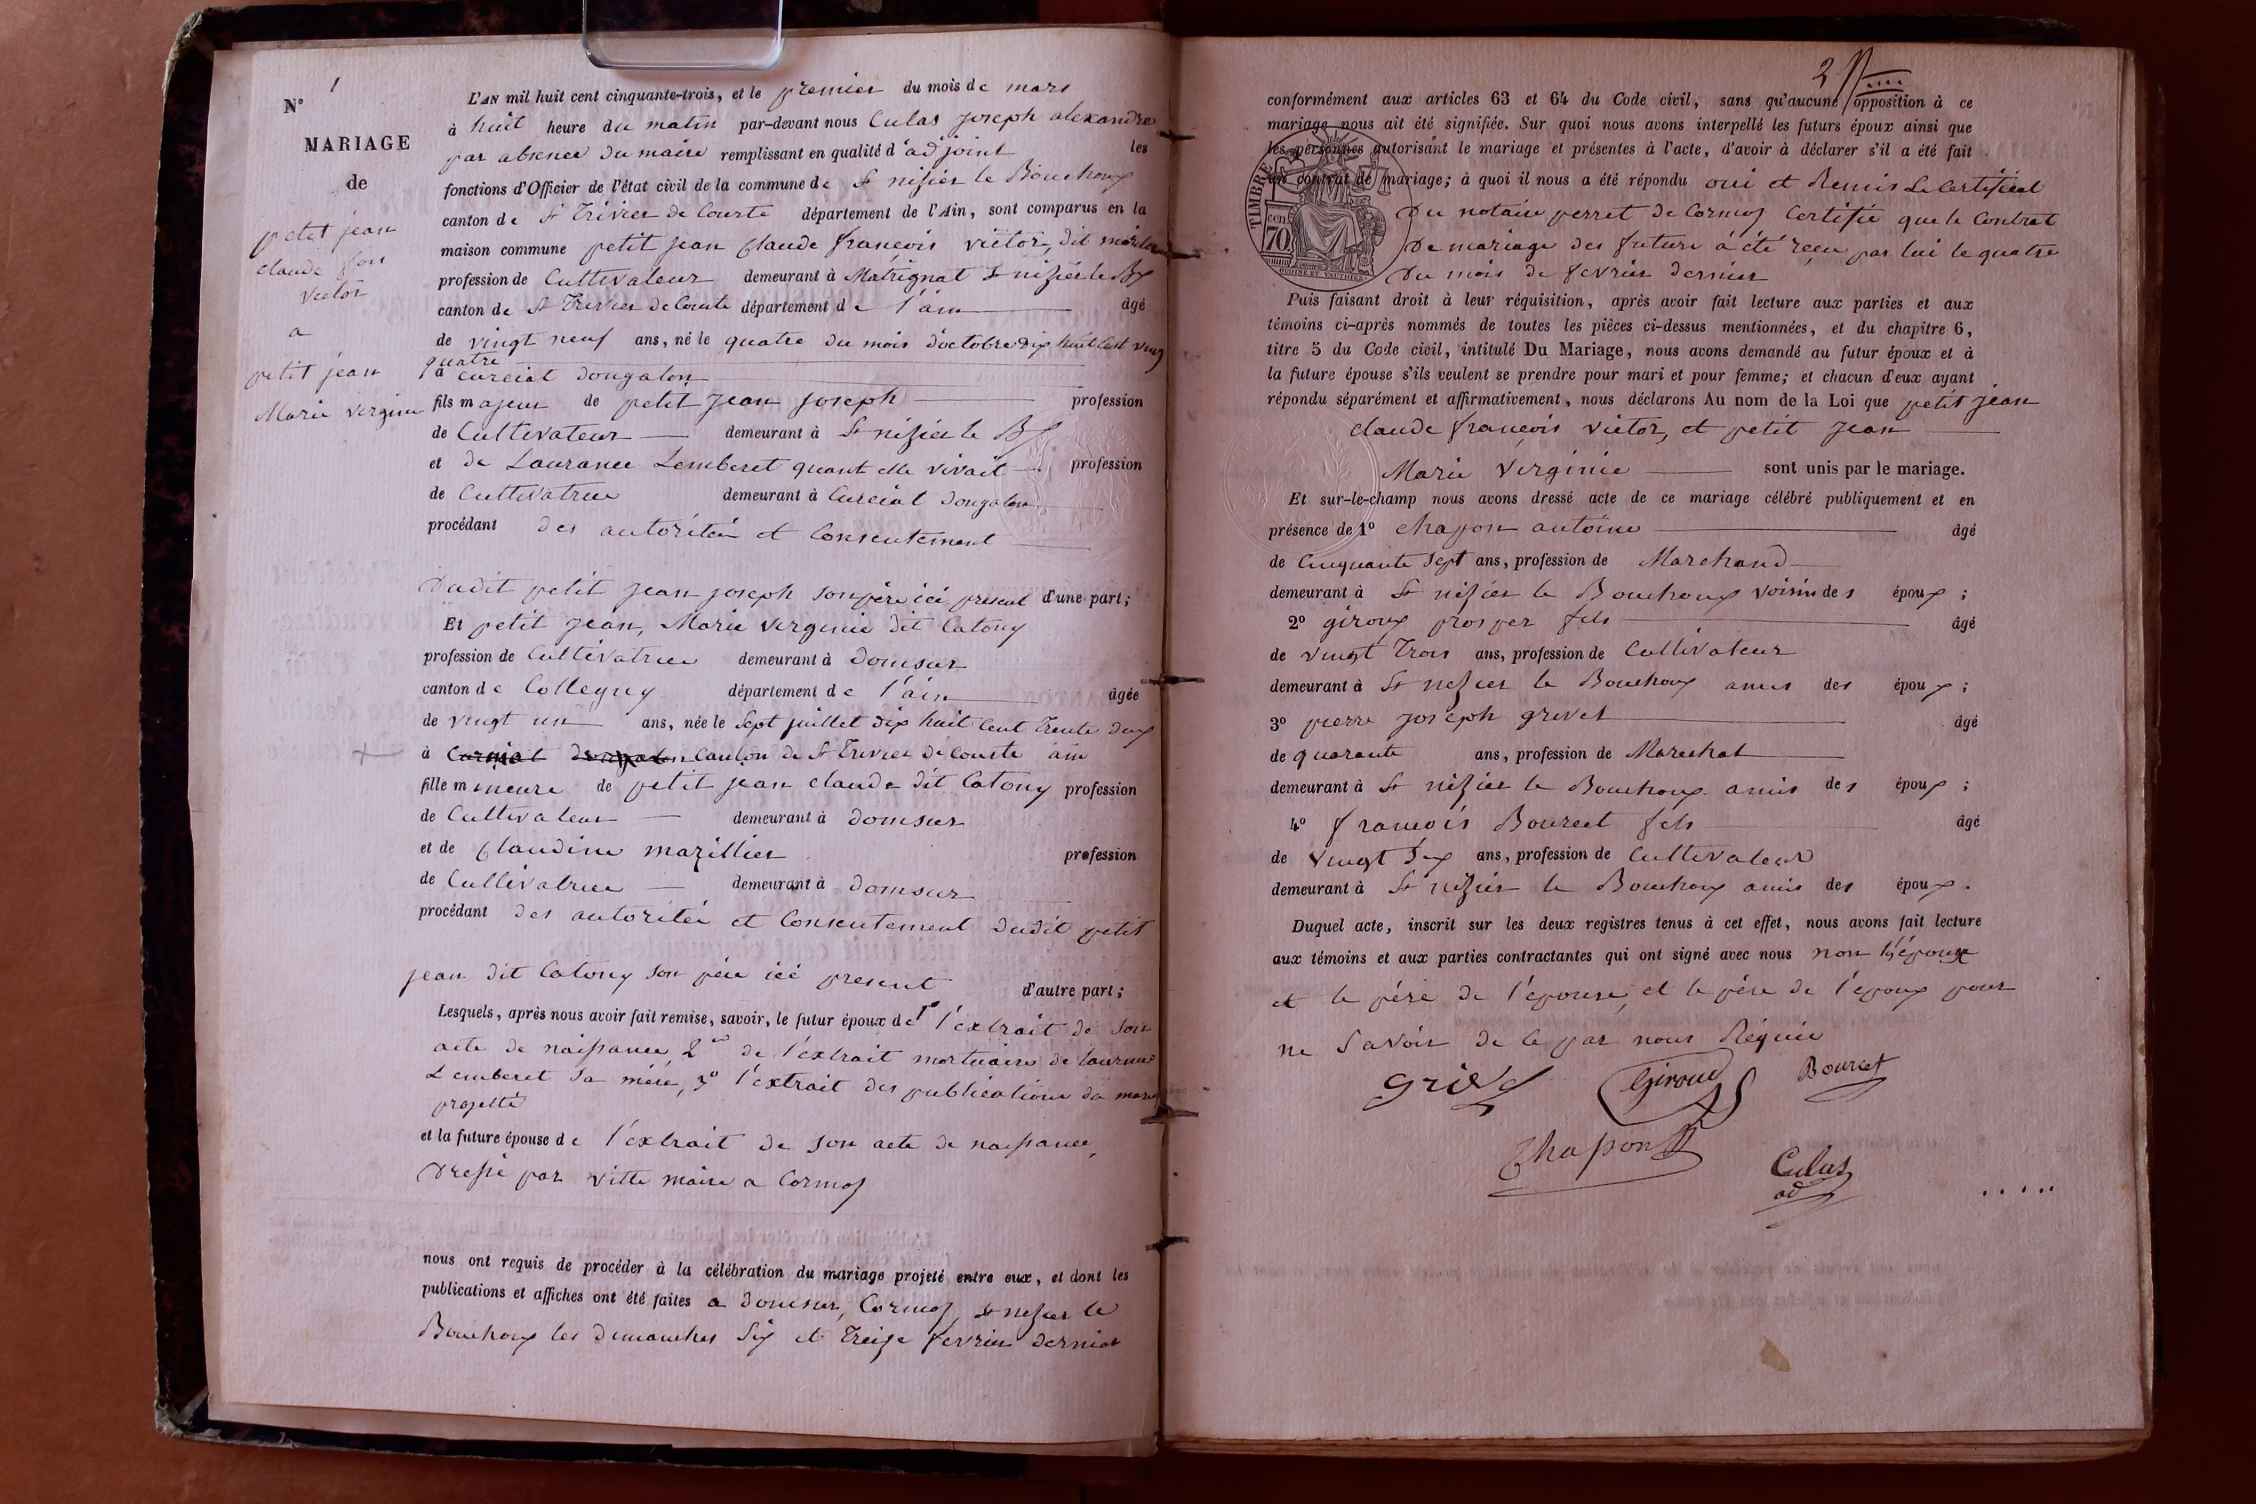 N° 1
MARIAGE
de
petit jean
claude fois
victor
a
petit jean
Marie Vergine
L'AN mil huit cent cinquante-trois, et le premier du mois de mars
à huit heure du matin par-devant nous Culas joseph alexandre
par absence du maire remplissant en qualité d'adjoint les
fonctions d'Officier de l'état civil de la commune de St nizier le Bouchoux
canton de St Trivier de Courte département de l'Ain, sont comparus en la
maison commune petit jean claude françois victor, dit
profession de Cultivateur demeurant à Matrignat St nizier le Bx
canton de St Trivier de Courte département de l'ain âgé
de vingt neuf ans, né le quatre du mois d'octobre dix huit Cent ving
quatre
à curciat dongalon
fils majeur de petit jean joseph profession
de Cultivateur demeurant à St nizier le Bx
et de Laurance Lemberet quant elle vivait profession
de Cultivatrice demeurant à Curciat dongalon
procédant des autoritée et Consentement
dudit petit jean joseph son père ici présent d'une part;
Et petit jean, Marie Verginie dit Catony
profession de Cultivatrice demeurant à domsur
canton de Collegny département de l'ain âgée
de vingt un ans, née le Sept juillet dix huit Cent Trente deux
à Curciat dongalon Canton de St Trivier de Courte ain
fille mineure de petit jean claude dit Catony profession
de Cultivateur demeurant à domsur
et de Claudine mazillier profession
de Cultivatrice demeurant à domsur
procédant des autoritée et Consentement dudit petit
jean dit Catony son père ici present d'autre part;
Lesquels, après nous avoir fait remise, savoir, le futur époux de 1° l'extrait de son
acte de naissance, 2° de l'extrait mortuaire de Laurance
Lemberet sa mère, 3° l'extrait des publications du mar
projetté
et la future épouse de l'extrait de son acte de naissance,
dressé par vitte maire a Cormoz
nous ont requis de procéder à la célébration du mariage projeté entre eux, et dont les
publications et affiches ont été faites a domsur, Cormoz, St nizier le
Bouchoux les dimanches Six et Treize fevrier dernier
2
conformément aux articles 63 et 64 du Code civil, sans qu'aucune opposition à ce
mariage nous ait été signifiée. Sur quoi nous avons interpellé les futurs époux ainsi que
les personnes autorisant le mariage et présentes à l'acte, d'avoir à déclarer s'il a été fait
un contrat de mariage; à quoi il nous a été répondu oui et Remis Le Certificat
Du notaire perret de Cormoz Certifie que le Contrat
De mariage des futurs à été reçu par lui le quatre
Du mois de fevrier dernier
TIMBRE
cen
70
Puis faisant droit à leur réquisition, après avoir fait lecture aux parties et aux
témoins ci-après nommés de toutes les pièces ci-dessus mentionnées, et du chapitre 6,
titre 5 du Code civil, intitulé Du Mariage, nous avons demandé au futur époux et à
la future épouse s'ils veulent se prendre pour mari et pour femme; et chacun d'eux ayant
répondu séparément et affirmativement, nous déclarons Au nom de la Loi que petit jean
claude françois victor, et petit jean
Marie Verginie sont unis par le mariage.
Et sur-le-champ nous avons dressé acte de ce mariage célébré publiquement et en
présence de 1° chapon antoine âgé
de Cinquante sept ans, profession de Marchand
demeurant à St nizier le Bouchoux voisin des époux ;
2° giroux prosper fils âgé
de vingt Trois ans, profession de Cultivateur
demeurant à St nizier le Bouchoux amis des époux ;
3° pierre joseph grivet âgé
de quarante ans, profession de Marechal
demeurant à St nizier le Bouchoux amis des époux ;
4° françois Bourcet fils âgé
de vingt Six ans, profession de Cultivateur
demeurant à St nizier le Bouchoux amis des époux.
Duquel acte, inscrit sur les deux registres tenus à cet effet, nous avons fait lecture
aux témoins et aux parties contractantes qui ont signé avec nous non l'époux
et le père de l'epouse, et le père de l'époux pour
ne Savoir de le par nous Réquie
Grivet
Giroud
Bourcet
Chapon
Culas
ad